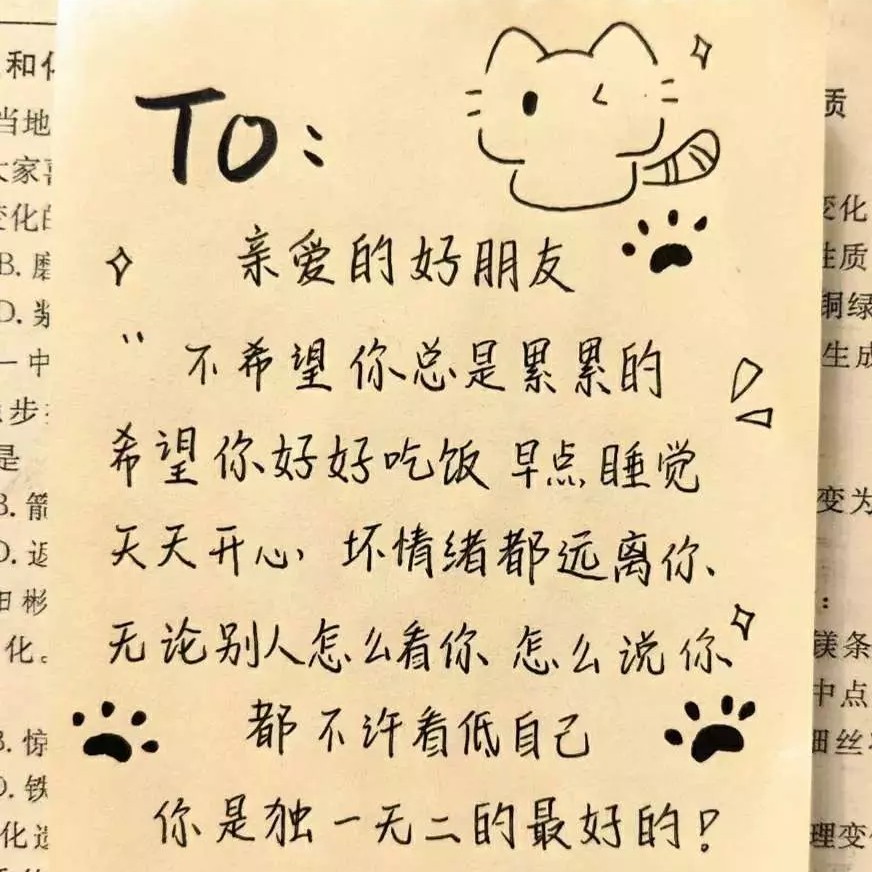 TO:
亲爱的好朋友
“不希望你总是累累的
希望你好好吃饭 早点睡觉
天天开心, 坏情绪都远离你、
无论别人怎么看你 怎么说你
都不许看低自己
你是独一无二的最好的!
和
当地
大家喜
变化的
B. 磨
D. 浆
一中
步
是
B. 箭
D. 迈
田彬
化。
B. 惊
D. 铁
化造
质
变化
性质
铜绿
生成
变为
:
镁条
中点
细丝
理变化